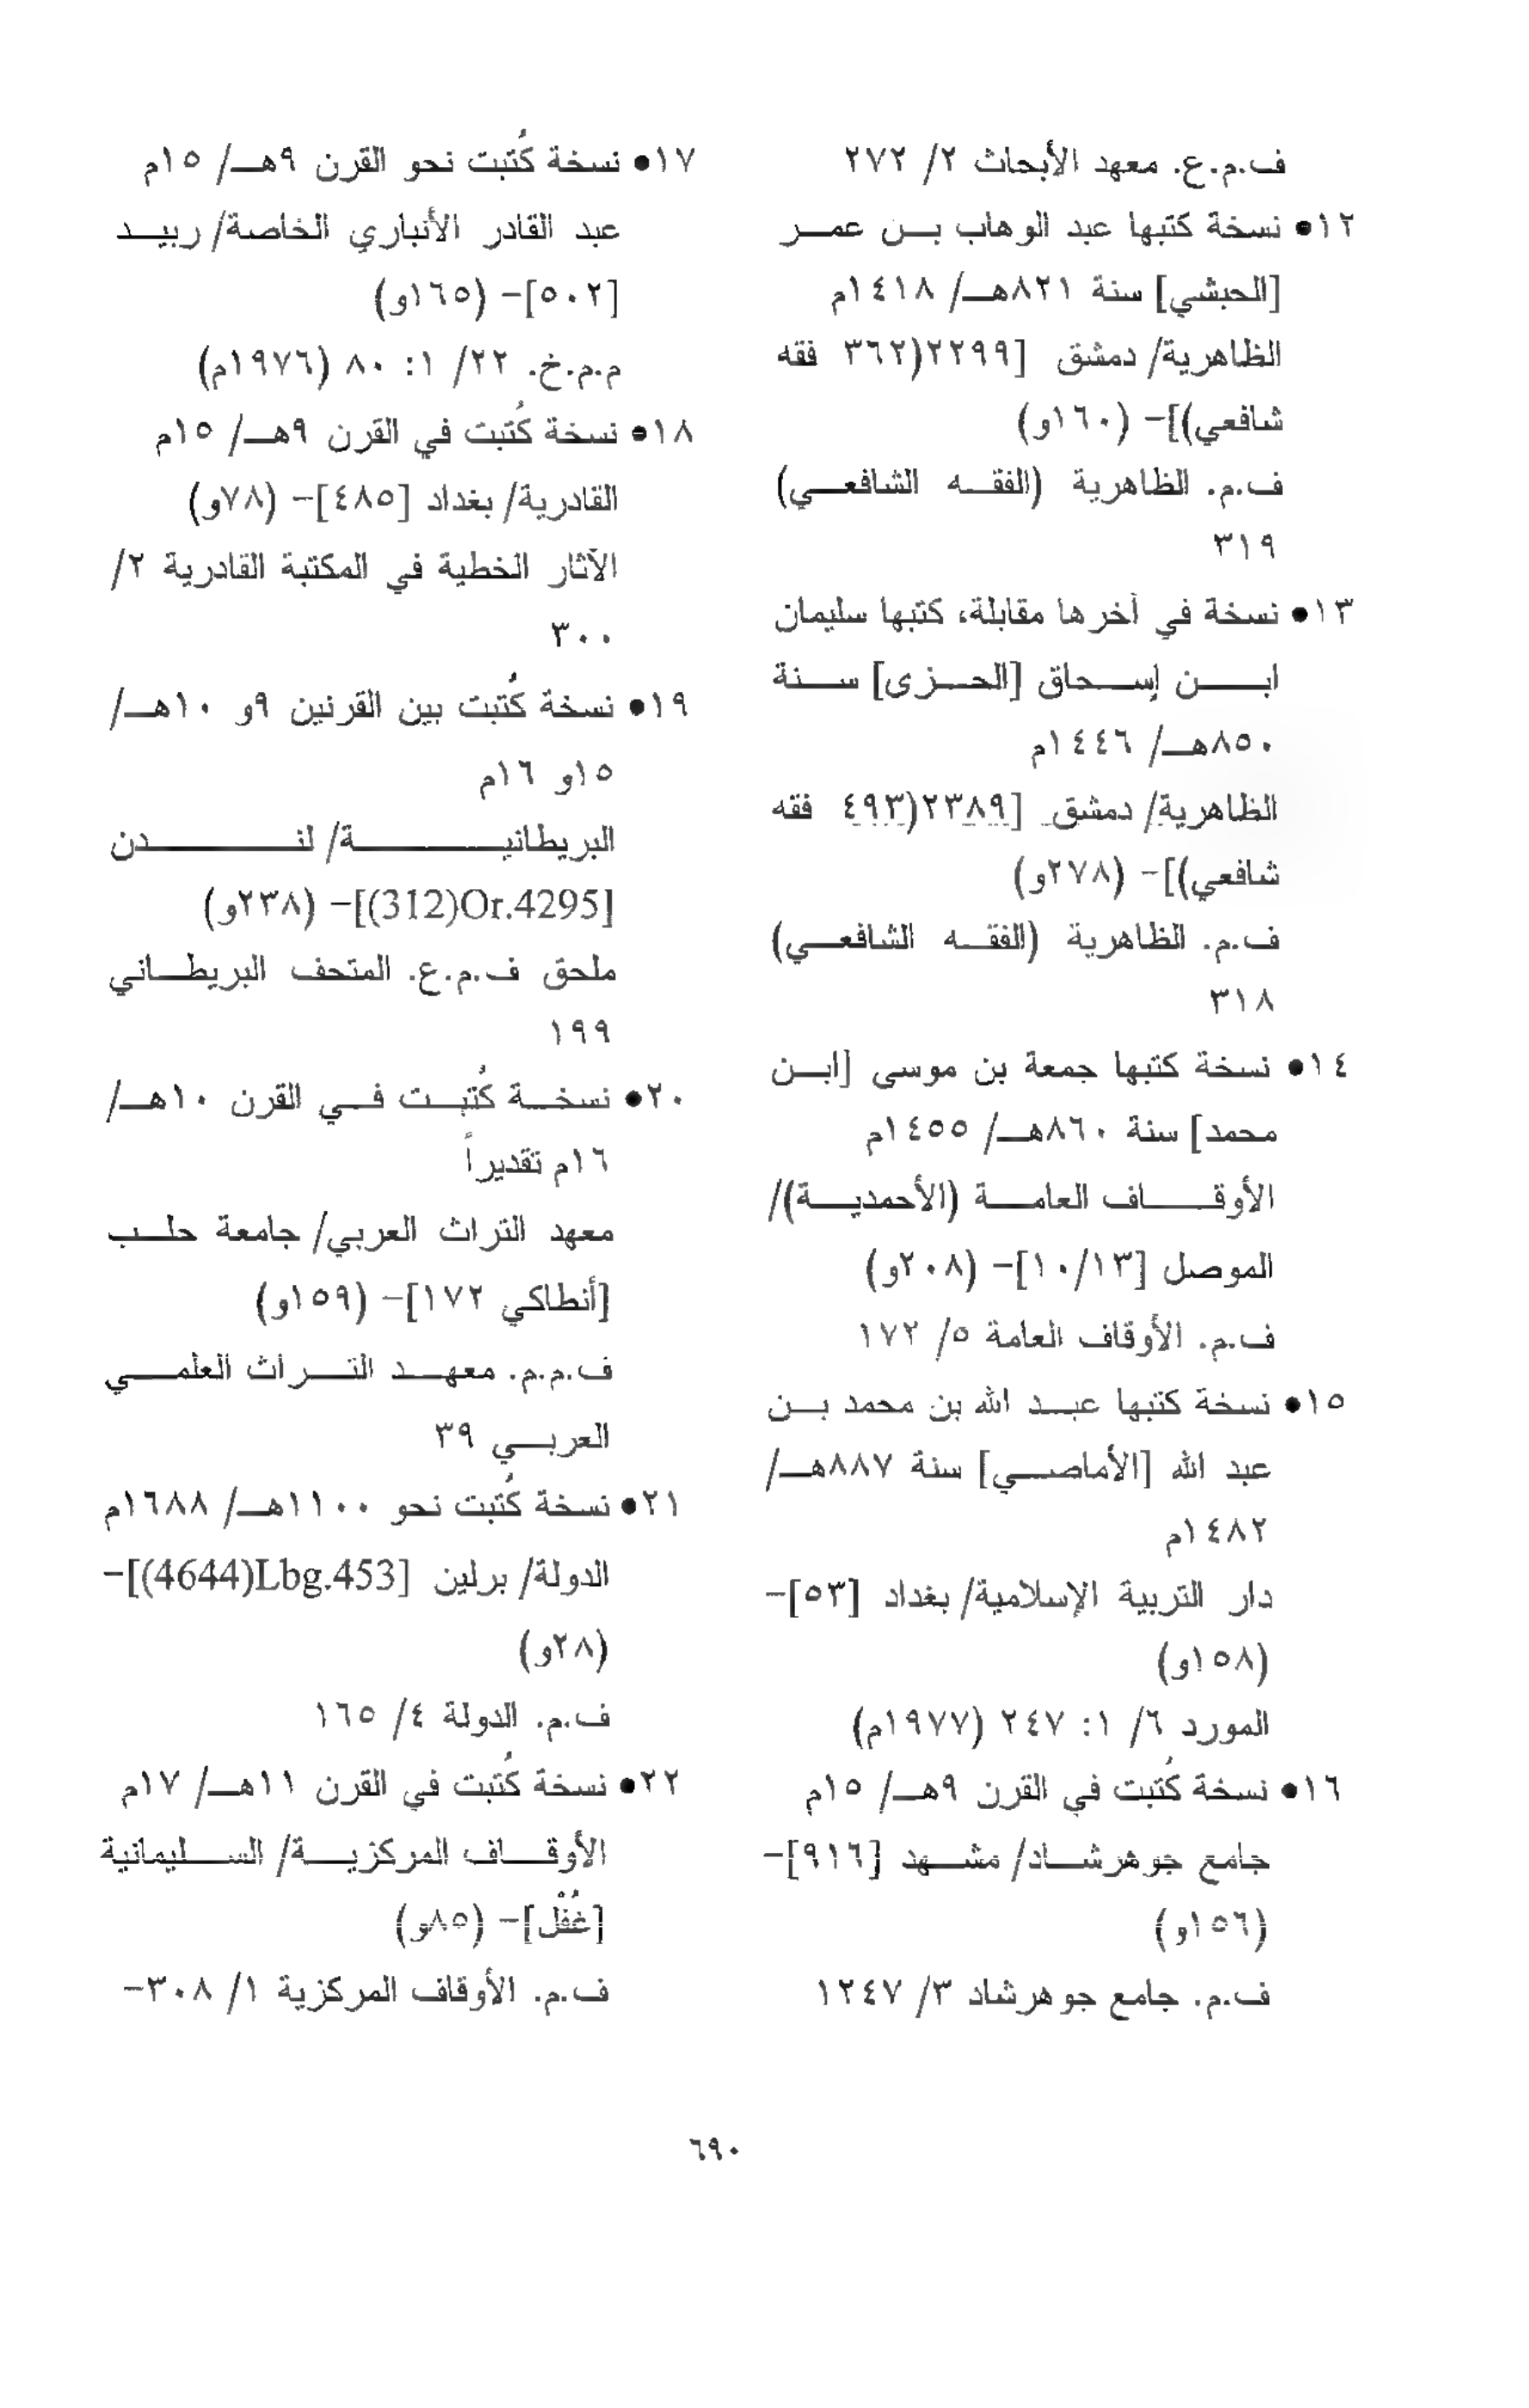 ف.م.ع. معهد الأبحاث ٢/ ٢٧٢
١٢● نسخة كتبها عبد الوهاب بن عمر
[الحبشي] سنة ٨٢١هـ/ ١٤١٨م
الظاهرية/ دمشق [٢٢٩٩(٣٦٢ فقه
شافعي)]- (١٦٠و)
ف.م. الظاهرية (الفقه الشافعي)
٣١٩
١٣● نسخة في آخرها مقابلة، كتبها سليمان
ابن إسحاق [الحزى] سنة
٨٥٠هـ/ ١٤٤٦م
الظاهرية/ دمشق [٢٣٨٩(٤٩٣ فقه
شافعي)]- (٢٧٨و)
ف.م. الظاهرية (الفقه الشافعي)
٣١٨
١٤● نسخة كتبها جمعة بن موسى [ابن
محمد] سنة ٨٦٠هـ/ ١٤٥٥م
الأوقاف العامة (الأحمدية)/
الموصل [١٠/١٣]- (٢٠٨و)
ف.م. الأوقاف العامة ٥/ ١٧٢
١٥● نسخة كتبها عبد الله بن محمد بن
عبد الله [الأماصي] سنة ٨٨٧هـ/
١٤٨٢م
دار التربية الإسلامية/ بغداد [٥٣]-
(١٥٨و)
المورد ٦/ ١: ٢٤٧ (١٩٧٧م)
١٦● نسخة كُتبت في القرن ٩هـ/ ١٥م
جامع جوهرشاد/ مشهد [٩١٦]-
(١٥٦و)
ف.م. جامع جوهرشاد ٣/ ١٢٤٧
١٧● نسخة كُتبت نحو القرن ٩هـ/ ١٥م
عبد القادر الأنباري الخاصة/ ربيد
[٥٠٢]- (١٦٥و)
م.م.خ. ٢٢/ ١: ٨٠ (١٩٧٦م)
١٨● نسخة كُتبت في القرن ٩هـ/ ١٥م
القادرية/ بغداد [٤٨٥]- (٧٨و)
الآثار الخطية في المكتبة القادرية ٢/
٣٠٠
١٩● نسخة كُتبت بين القرنين ٩و ١٠هـ/
١٥و ١٦م
البريطانية/ لندن
[Or.4295(312)]- (٢٣٨و)
ملحق ف.م.ع. المتحف البريطاني
١٩٩
٢٠● نسخة كُتبت في القرن ١٠هـ/
١٦م تقديراً
معهد التراث العربي/ جامعة حلب
[أنطاكي ١٧٢]- (١٥٩و)
ف.م.م. معهد التراث العلمي
العربي ٣٩
٢١● نسخة كُتبت نحو ١١٠٠هـ/ ١٦٨٨م
الدولة/ برلين [Lbg.453(4644)]-
(٢٨و)
ف.م. الدولة ٤/ ١٦٥
٢٢● نسخة كُتبت في القرن ١١هـ/ ١٧م
الأوقاف المركزية/ السليمانية
[غُفْل]- (٨٥و)
ف.م. الأوقاف المركزية ١/ ٣٠٨-
٦٩٠